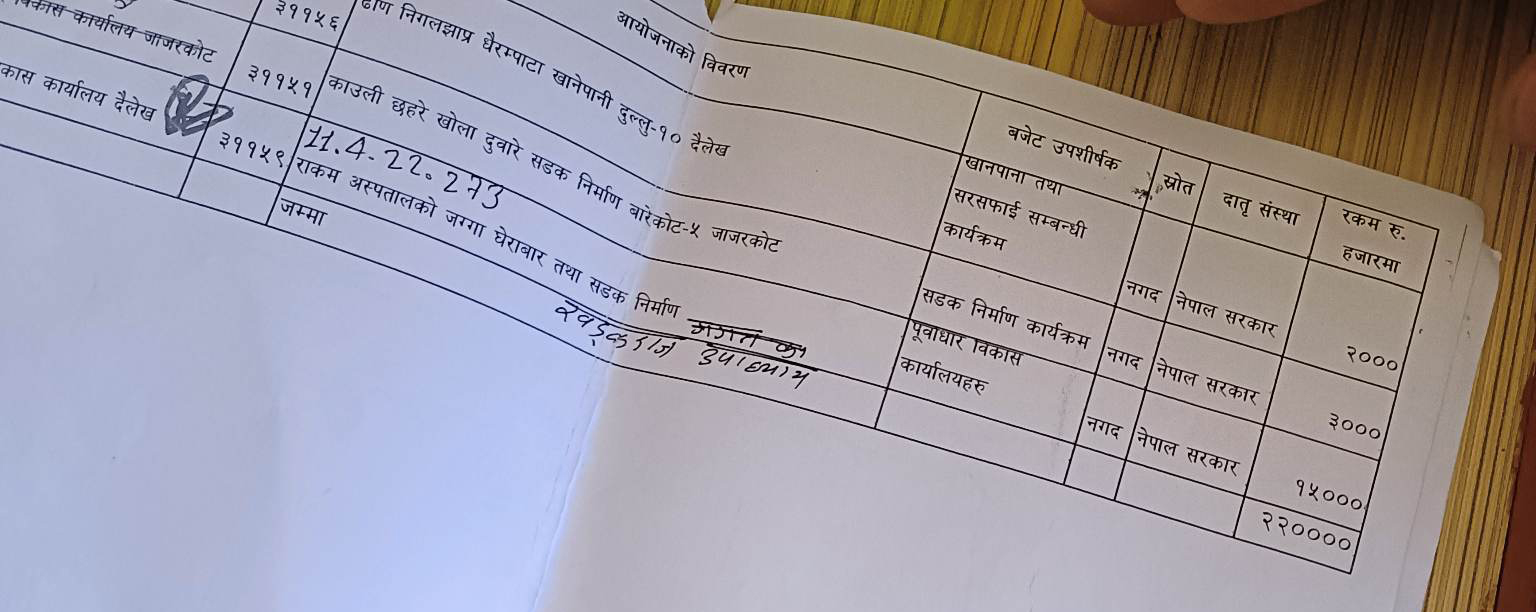 आयोजनाको विवरण
बजेट उपशीर्षक
स्रोत
दातृ संस्था
रकम रु.
हजारमा
३११५६
निगलझाप्र धैरम्पाटा खानेपानी दुल्लु-१० दैलेख
खानेपानी तथा
सरसफाई सम्बन्धी
कार्यक्रम
नगद
नेपाल सरकार
२०००
कार्यालय जाजरकोट
३११५१
काउली छहरे खोला दुवारे सडक निर्माण बारेकोट-५ जाजरकोट
सडक निर्माण कार्यक्रम
नगद
नेपाल सरकार
३०००
कार्यालय दैलेख
३११५९
11.4.22.273
राकम अस्पतालको जग्गा घेराबार तथा सडक निर्माण
खड्कराज उपाध्याय
पूर्वाधार विकास
कार्यालयहरु
नगद
नेपाल सरकार
१५०००
जम्मा
२२००००